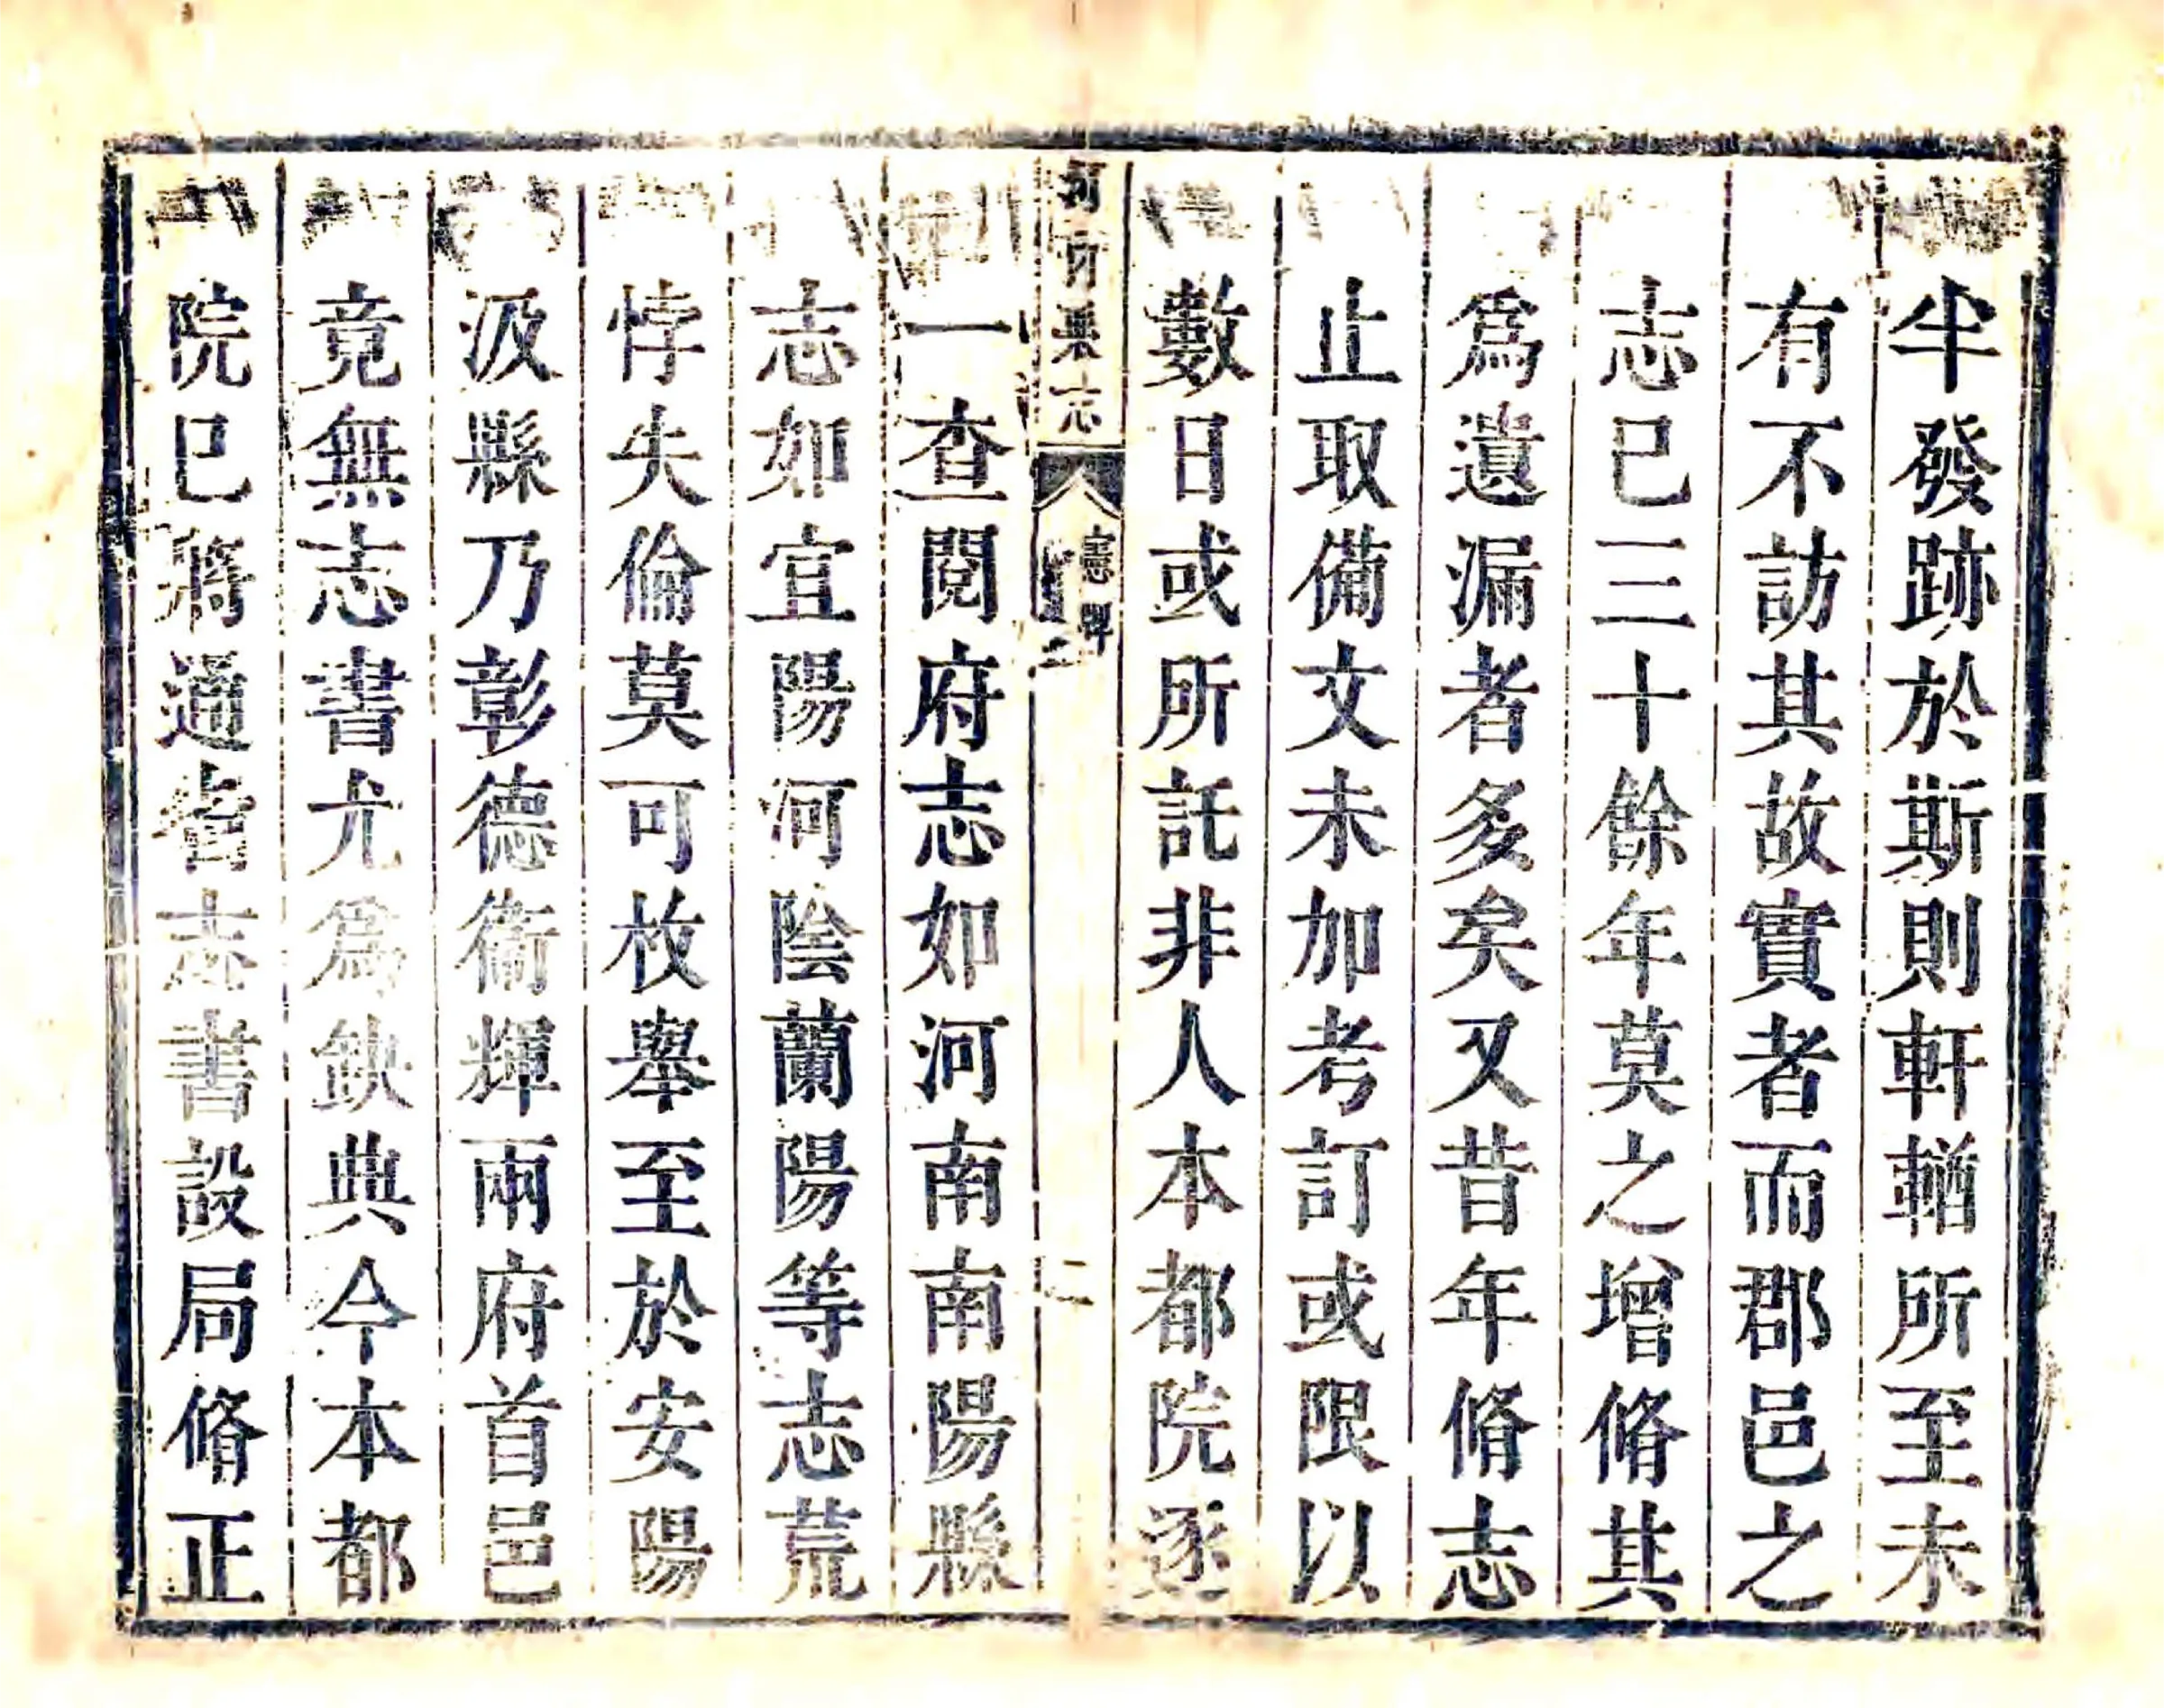 半發跡於斯則軒輶所至未
有不訪其故實者而郡邑之
志已三十餘年莫之增脩其
爲遺漏者多矣又昔年脩志
止取備文未加考訂或限以
數日或所託非人本都院逐
志
憲牌
二
一查閱府志如河南南陽縣
志如宜陽河陰蘭陽等志荒
悖失倫莫可枚舉至於安陽
汲縣乃彰德衛輝兩府首邑
竟無志書尤爲缺典今本都
院已將通省志書設局脩正